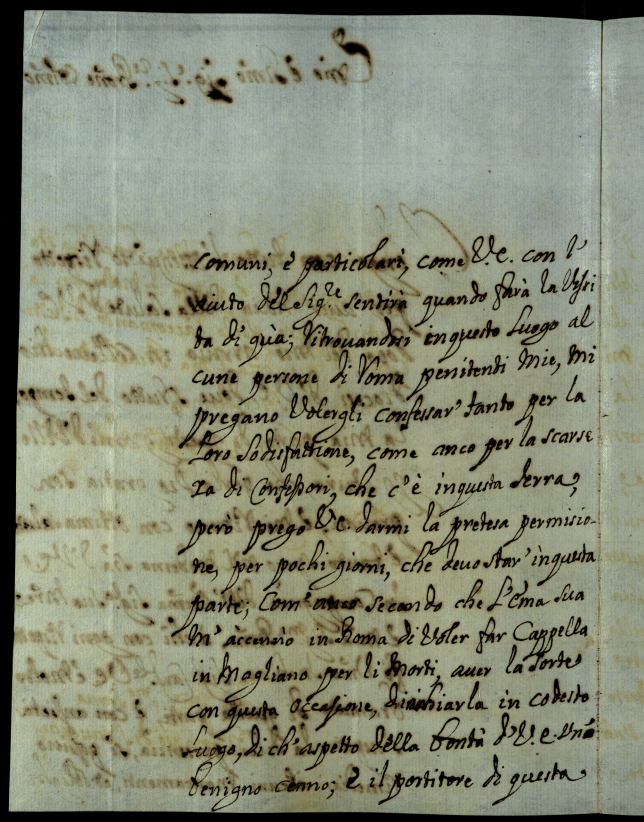 comuni, è particolari, come V.E. con l'
aiuto del Sig.re sentirà quando farà la Visi
ta di quà; Ritrouandosi in questo luogo al
cune persone di Roma penitenti Mie, Mi
pregano Volergli confessar' tanto per la
loro Sodisfattione, come anco per la scarse
za di Confessori, che c'è in questa Terra,
però prego V.E. darmi la pretesa permisio-
ne, per pochi giorni, che deuo star' in questa
parte; Com' anco secondo che L'Ema Sua
M' accennò in Roma di Voler far Cappella
in Magliano per li Morti, auer la Sorte
con questa Occasione, di inchinarla in codesto
Luogo, di ch' aspetto della bontà d'V.E. Un
benigno cenno; è il portitore di questa